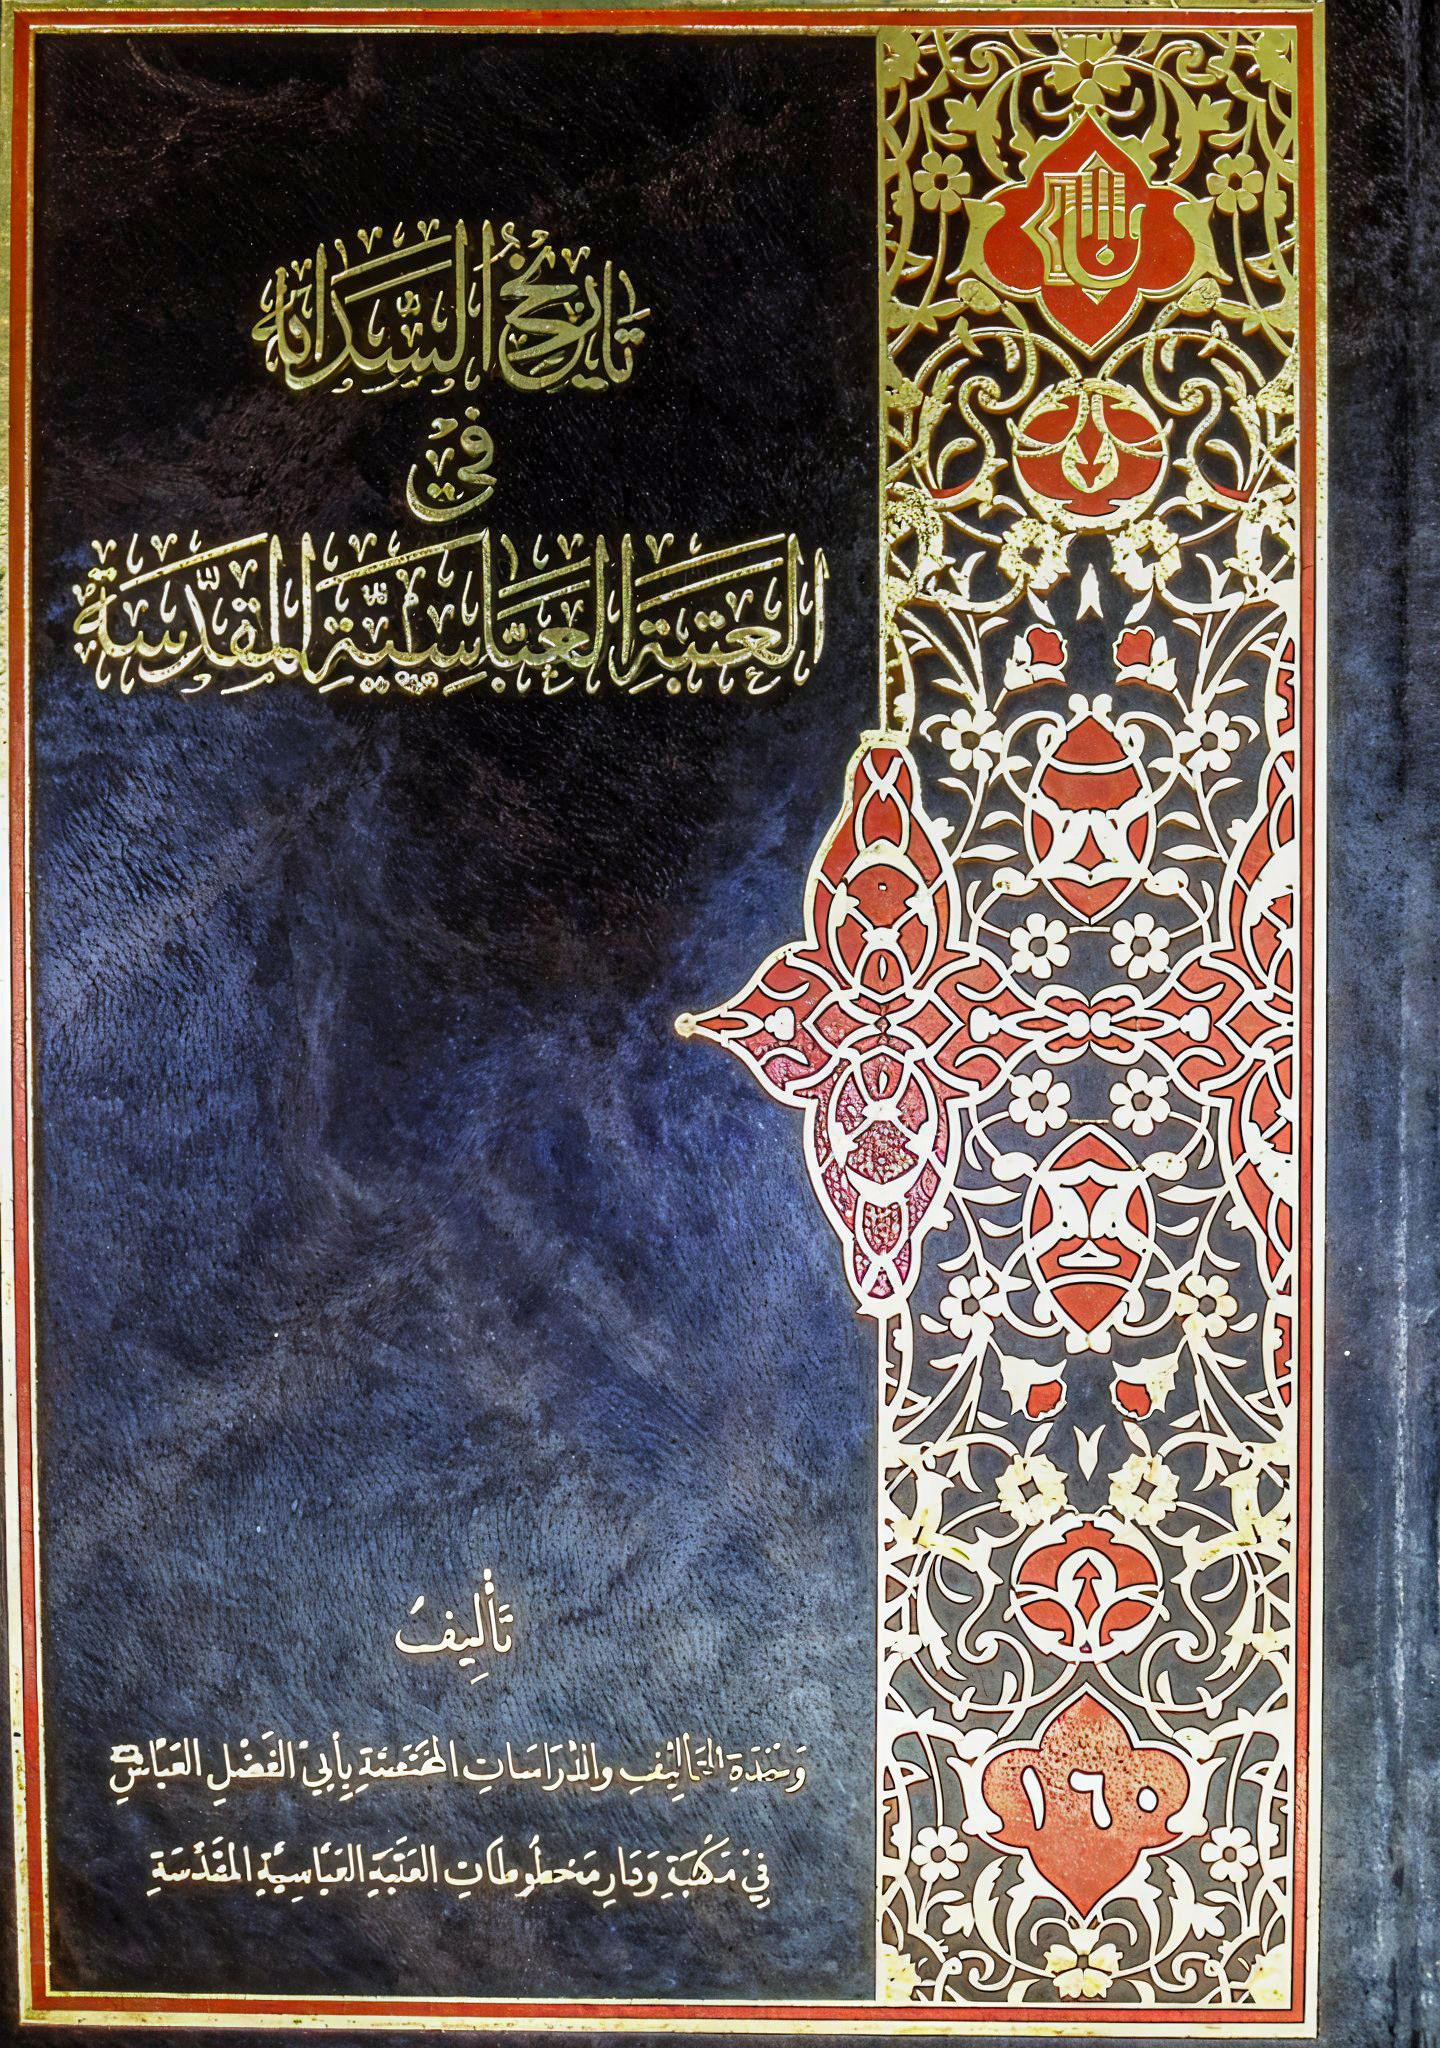 تَارِيْخُ السَّدَانَةِ
فِيْ
العَتَبَةِ العَبَّاسِيَّةِ المُقَدَّسَةِ
تَأْلِيفُ
وَحْدَةِ التَّأْلِيْفِ وَالدِّرَاسَاتِ المُخْتَصَّةِ بِأَبِيْ الفَضْلِ العَبَّاسِ
فِيْ مَكْتَبَةِ وَدَارِ مَخْطُوطَاتِ العَتَبَةِ العَبَّاسِيَّةِ المُقَدَّسَةِ
١٦٥